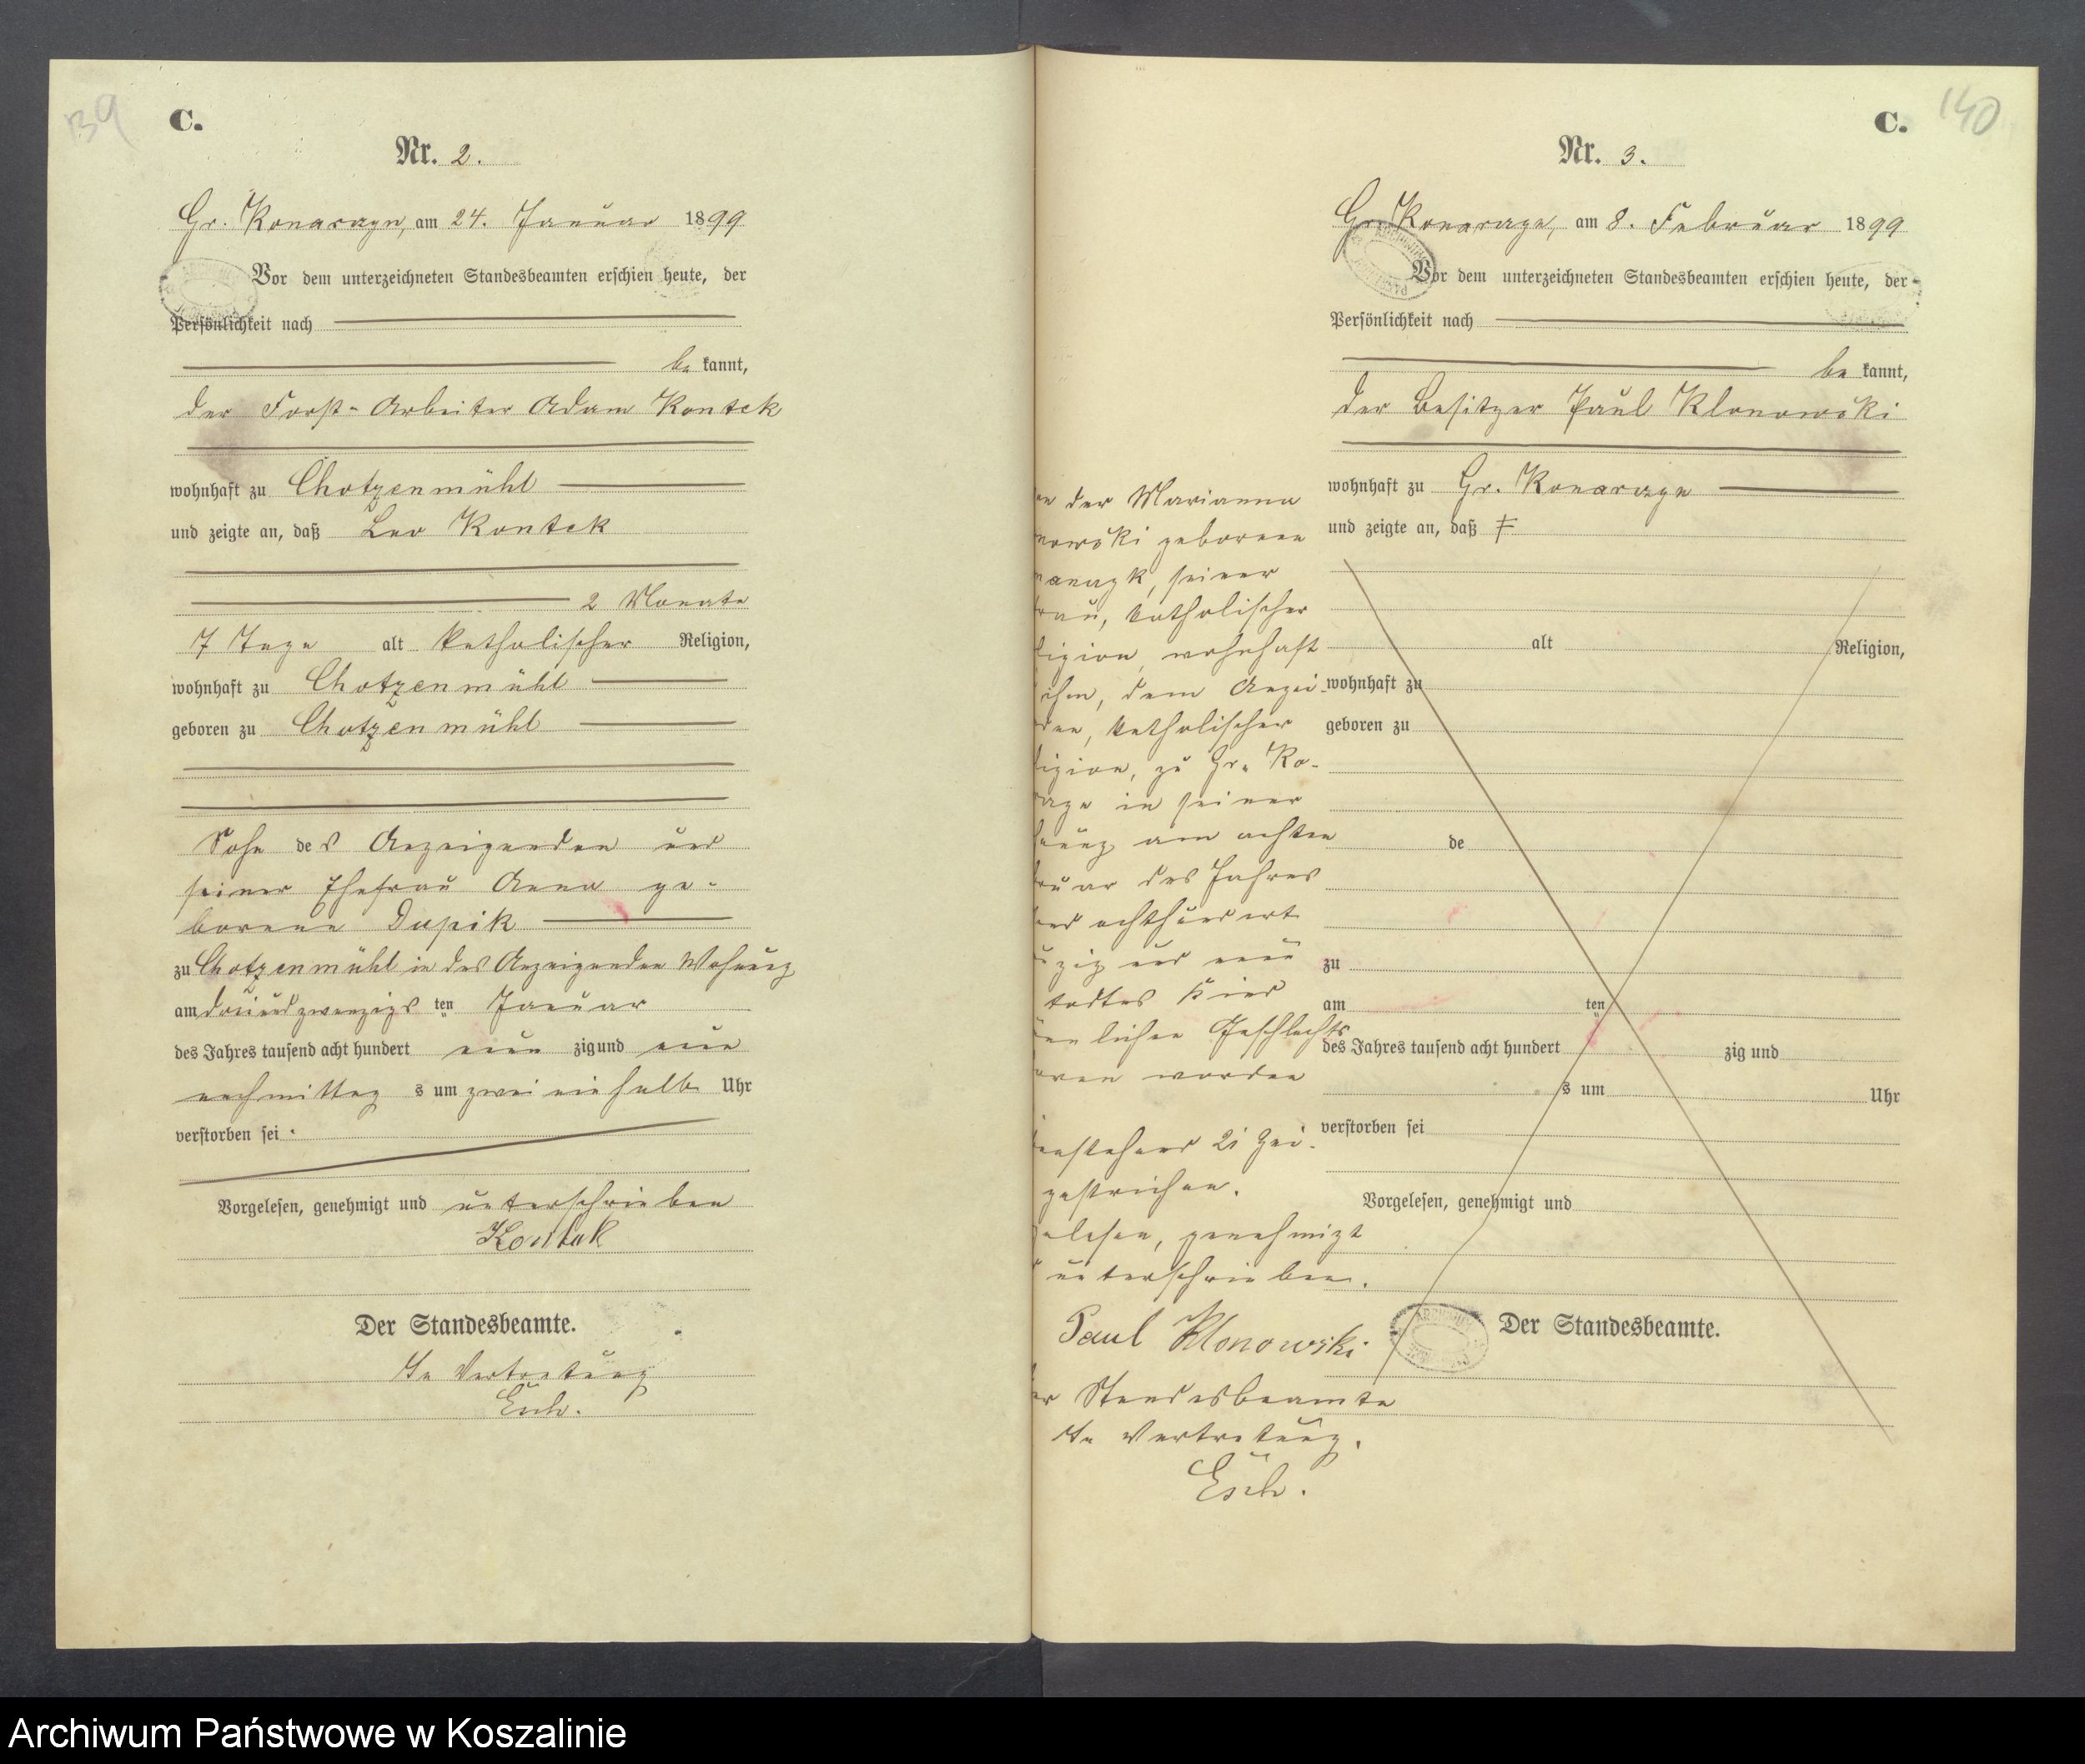 139
C.
Nr. 2.
Gr. Konarczyn, am 24. Januar 1899
Vor dem unterzeichneten Standesbeamten erschien heute, der
Persönlichkeit nach
be kannt,
der Forst-Arbeiter Adam Kontek
wohnhaft zu Chotzenmühl
und zeigte an, daß Leo Kontek
2 Monate
7 Tage alt katholischer Religion,
wohnhaft zu Chotzenmühl
geboren zu Chotzenmühl
Sohn des Anzeigenden und
seiner Ehefrau Anna ge-
borene Dupik
zu Chotzenmühl in des Anzeigenden Wohnung
am dreiundzwanzigs ten Januar
des Jahres tausend acht hundert neun zig und neun
nachmittag s um zwei einhalb Uhr
verstorben sei.
Vorgelesen, genehmigt und unterschrieben
Kontek
Der Standesbeamte.
In Vertretung
Esch.
140
C.
Nr. 3.
Gr. Konarczyn, am 8. Februar 1899
Vor dem unterzeichneten Standesbeamten erschien heute, der
Persönlichkeit nach
be kannt,
der Besitzer Paul Klonowski
wohnhaft zu Gr. Konarczyn
und zeigte an, daß
alt Religion,
wohnhaft zu
geboren zu
de
zu
am ten
des Jahres tausend acht hundert zig und
s um Uhr
verstorben sei
Vorgelesen, genehmigt und
Der Standesbeamte.
der Marianna
nowski geborene
seiner
rau, katholischer
ligion, wohnhaft
ihm, dem Anzei-
den, katholischer
ligion, zu Gr. Ko-
in seiner
am achten
bruar des Jahres
end achthundert
zig und neun
todtes Kind
nlichen Geschlechts
oren worden
enstehend 21 Zei-
gestrichen.
gelesen, genehmigt
unterschrieben.
Paul Klonowski
er Standesbeamte
In Vertretung.
Esch.
Archiwum Państwowe w Koszalinie